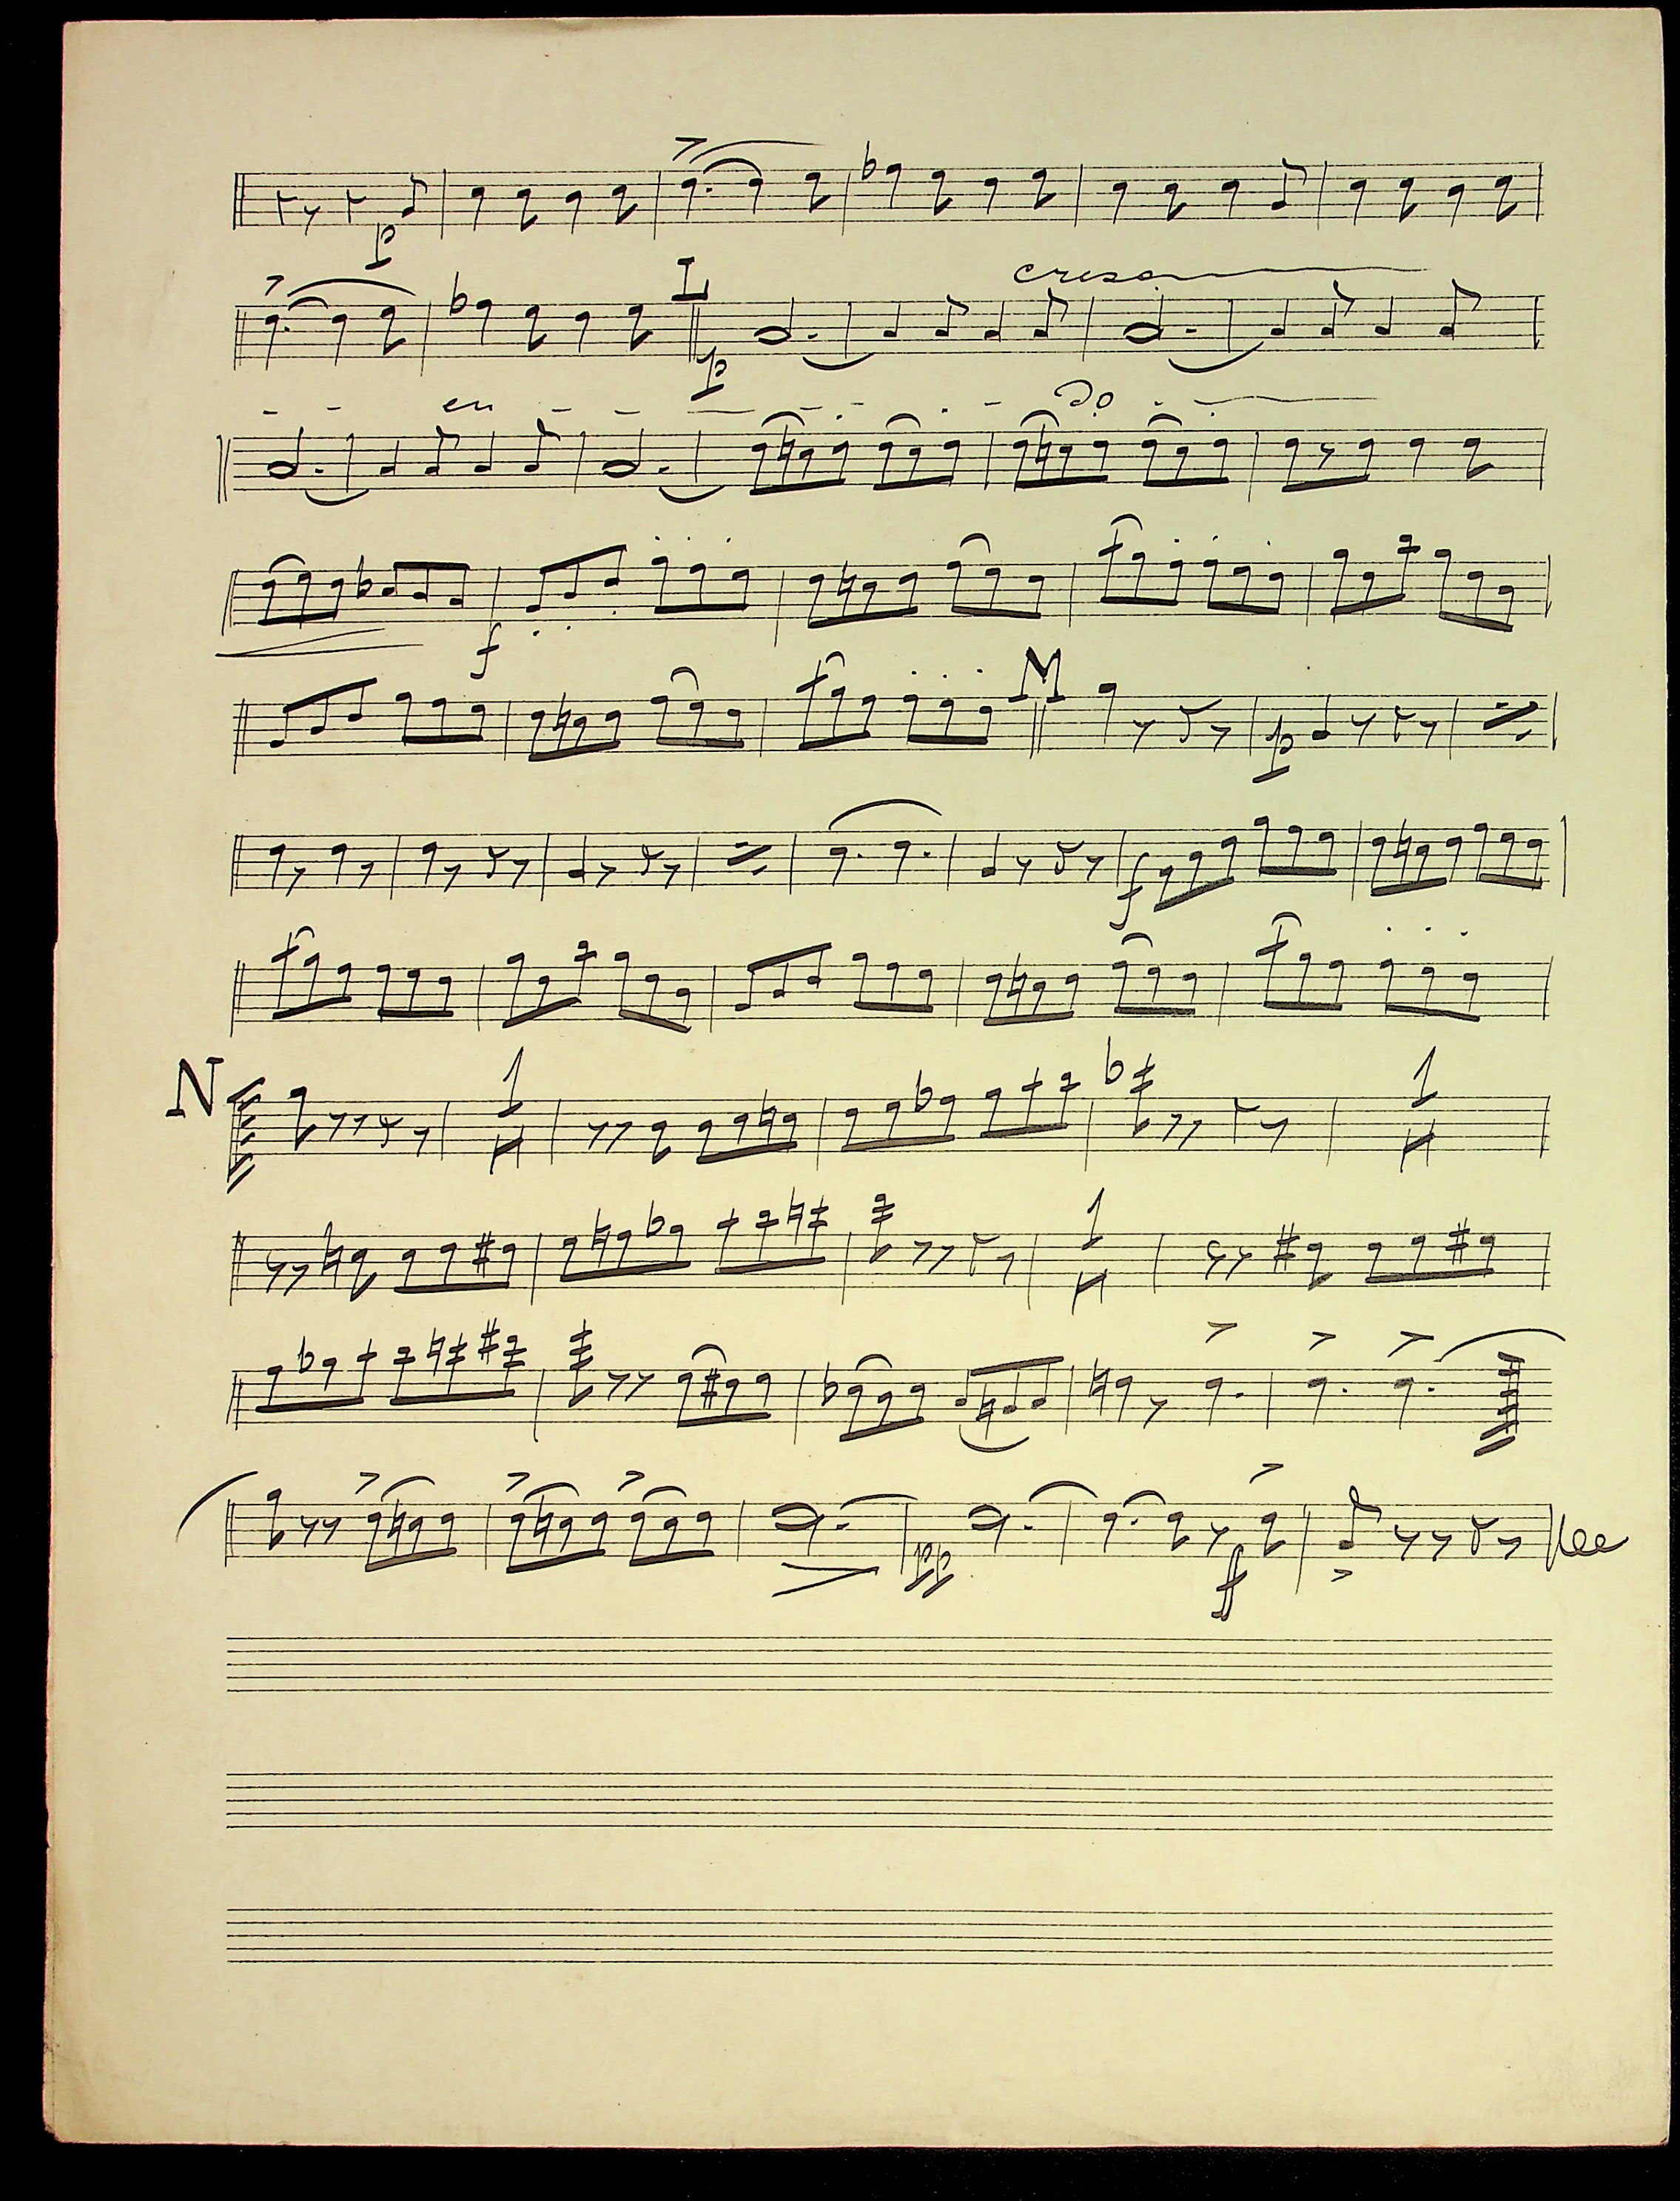 p
L
cresc
p
en do
f
M
p
f
N 1
1
1
pp
f